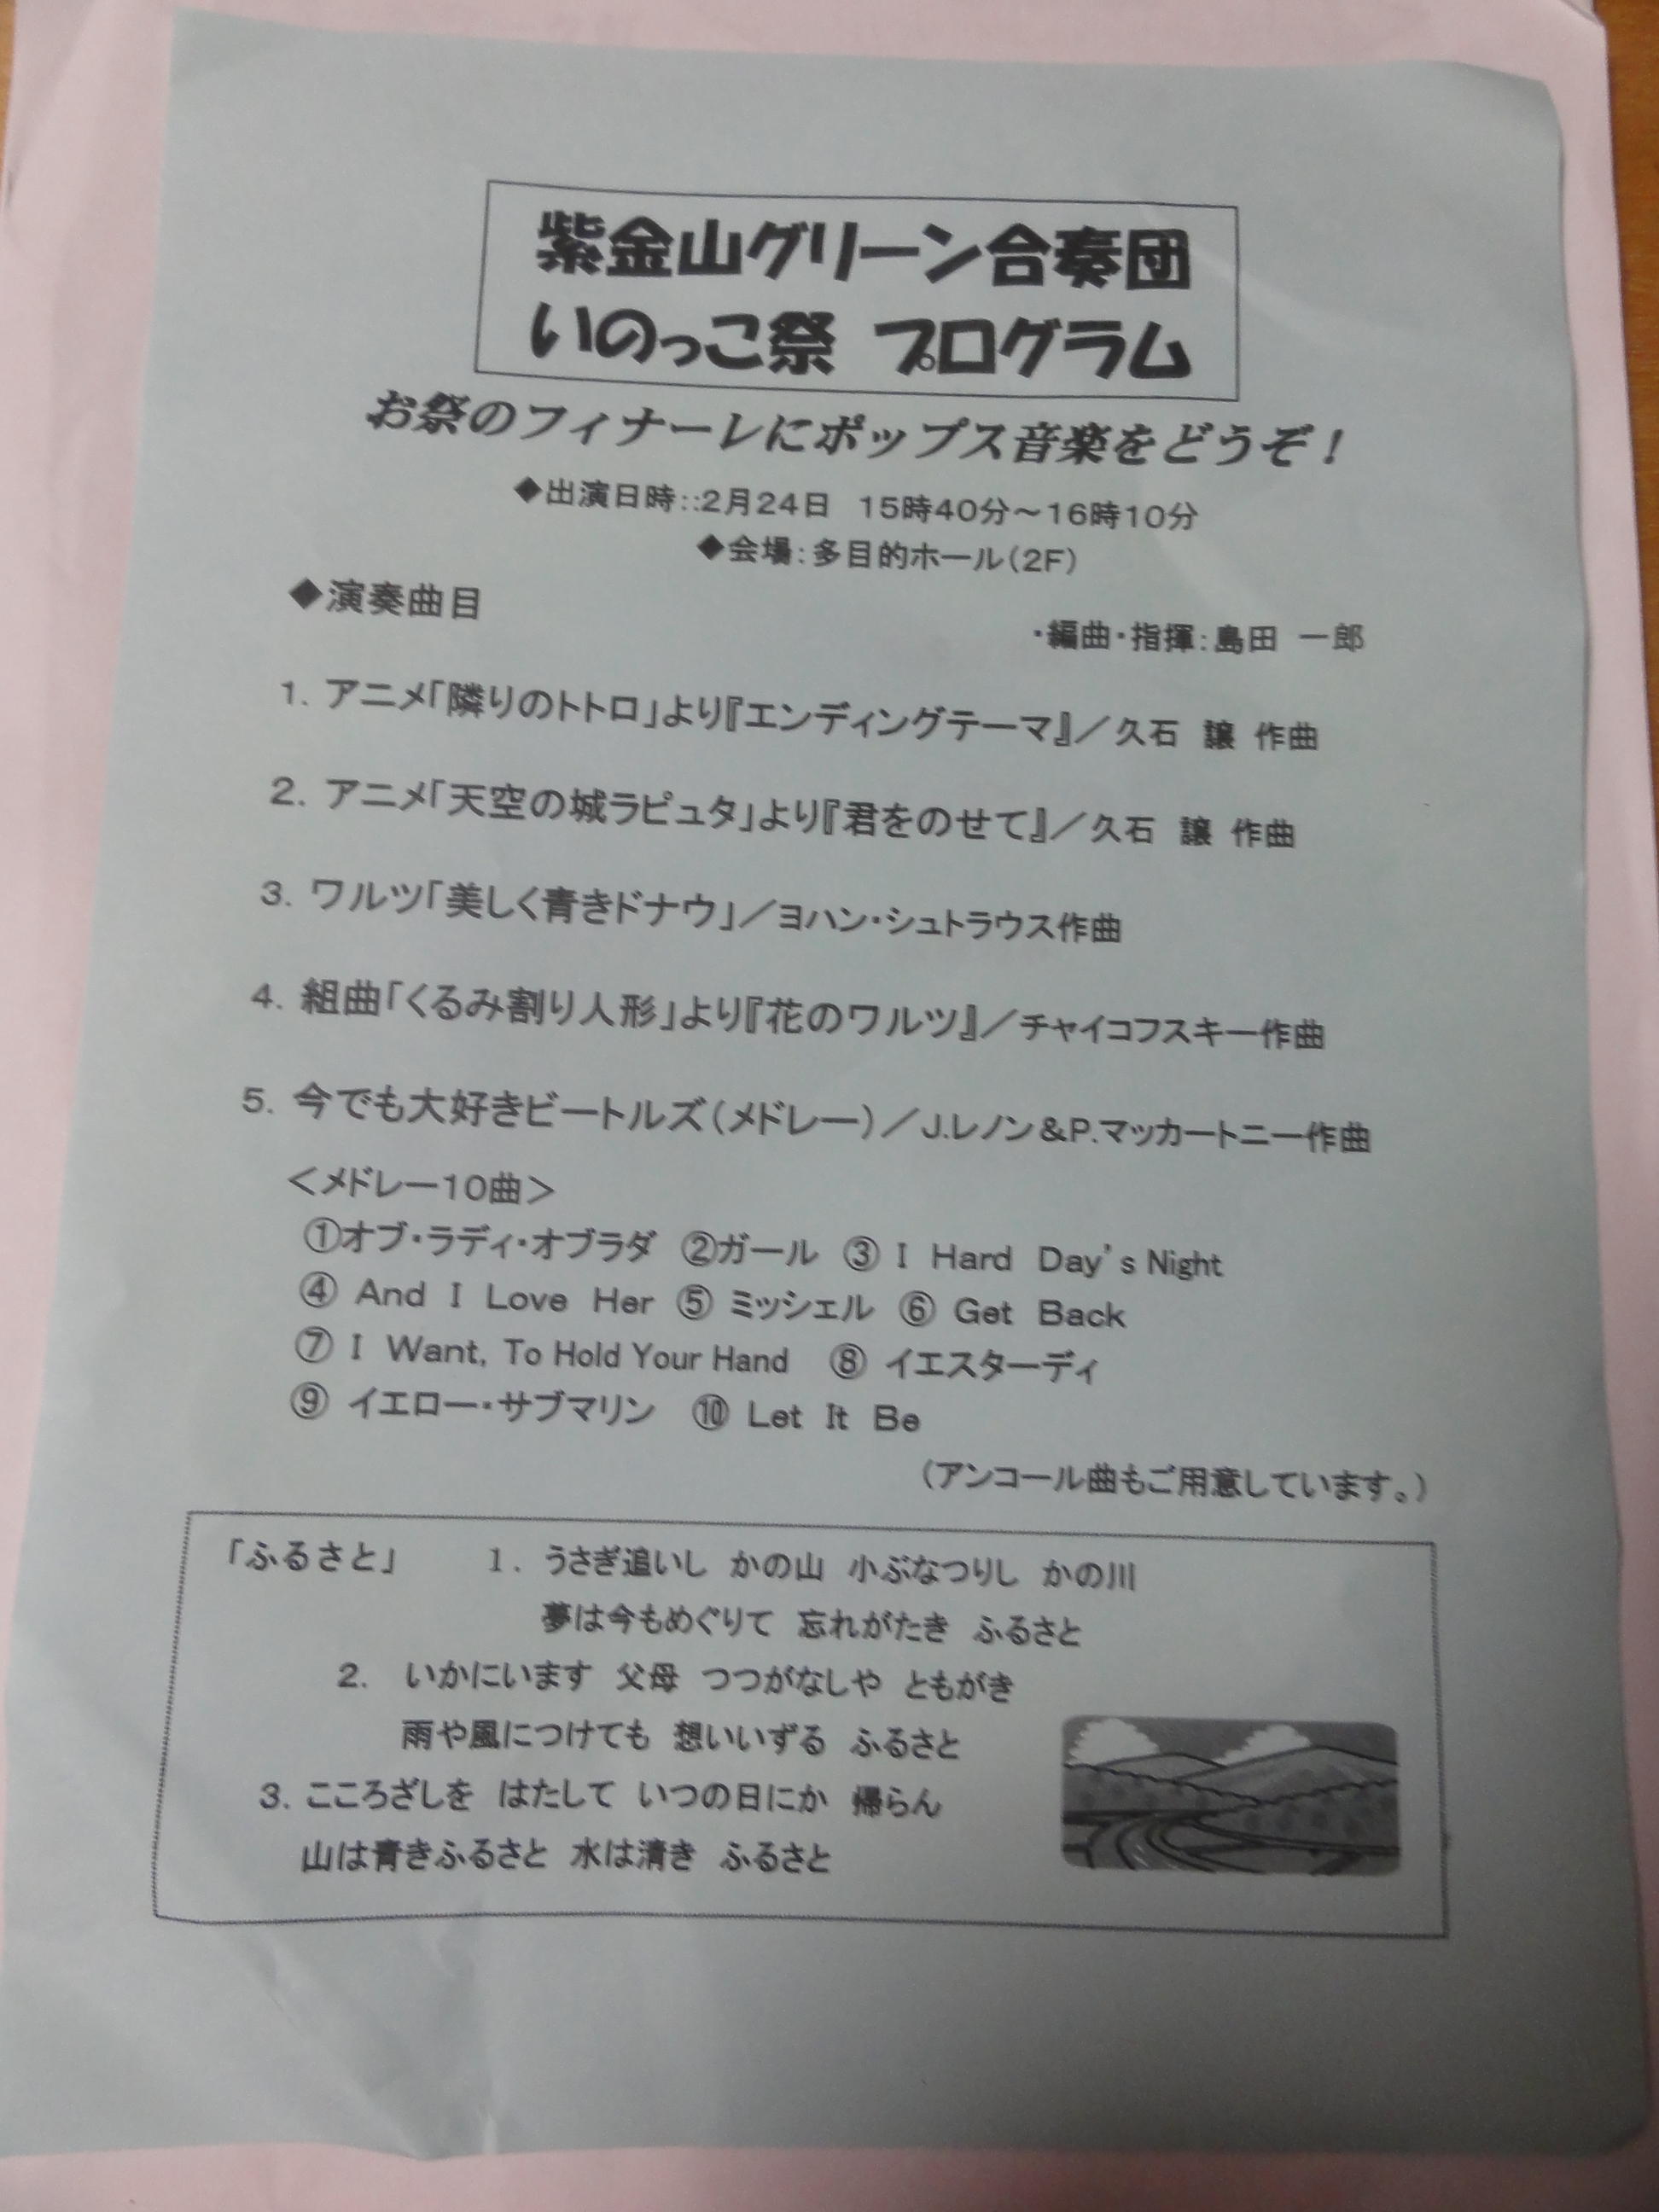 紫金山グリーン合奏団
いのっこ祭 プログラム
お祭のフィナーレにポップス音楽をどうぞ！
◆出演日時::2月24日 15時40分～16時10分
◆会場:多目的ホール(2F)
◆演奏曲目
・編曲・指揮:島田 一郎
1. アニメ「隣りのトトロ」より『エンディングテーマ』／久石 譲 作曲
2. アニメ「天空の城ラピュタ」より『君をのせて』／久石 譲 作曲
3. ワルツ「美しく青きドナウ」／ヨハン・シュトラウス作曲
4. 組曲「くるみ割り人形」より『花のワルツ』／チャイコフスキー作曲
5. 今でも大好きビートルズ(メドレー)／J.レノン&P.マッカートニー作曲
＜メドレー10曲＞
①オブ・ラディ・オブラダ ②ガール ③ I Hard Day's Night
④ And I Love Her ⑤ ミッシェル ⑥ Get Back
⑦ I Want, To Hold Your Hand ⑧ イエスターディ
⑨ イエロー・サブマリン ⑩ Let It Be
(アンコール曲もご用意しています。)
「ふるさと」 1. うさぎ追いし かの山 小ぶなつりし かの川
夢は今もめぐりて 忘れがたき ふるさと
2. いかにいます 父母 つつがなしや ともがき
雨や風につけても 想いいずる ふるさと
3. こころざしを はたして いつの日にか 帰らん
山は青きふるさと 水は清き ふるさと